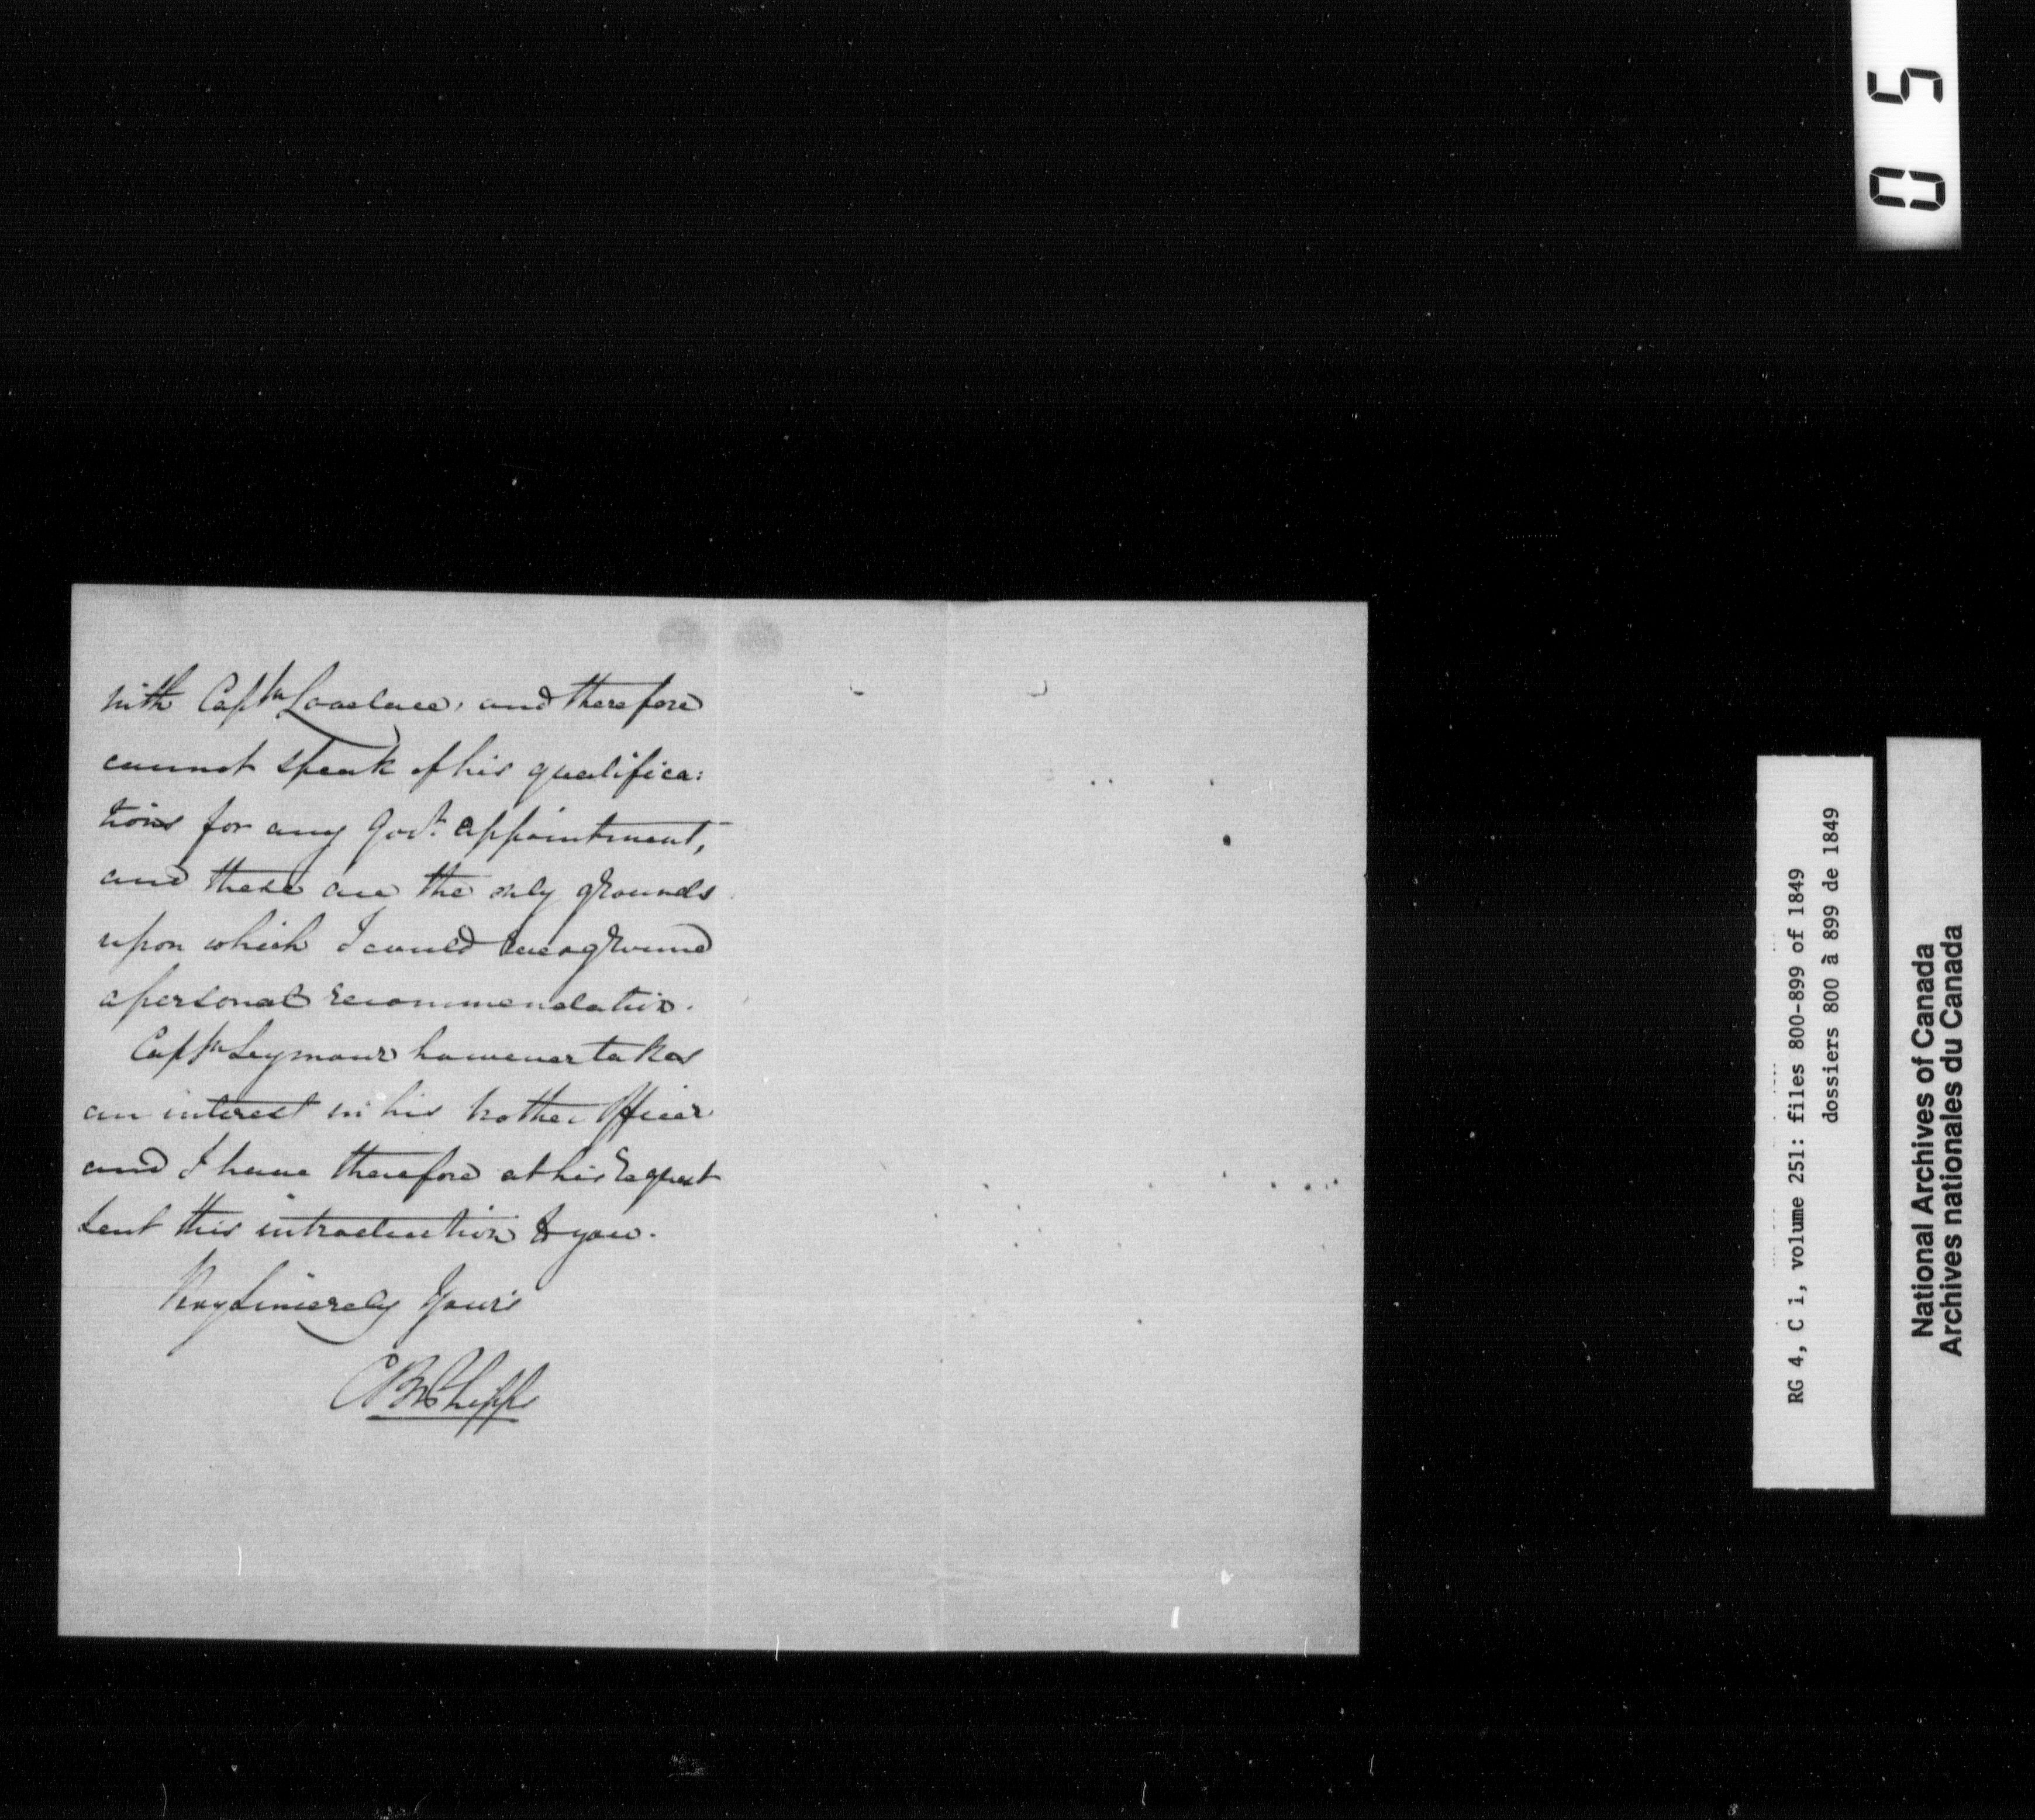 with Captn Lovelace, and therefore
cannot speak of his qualifica:
tions for any Govt. appointment,
and these are the only grounds
upon which I could ground
a personal recommendation.
Captn Seymour however takes
an interest in his brother Officer
and I have therefore at his request
sent this introduction to you.
Very Sincerely Yours
CBPhipps
05
RG 4, C 1, volume 251: files 800-899 of 1849
dossiers 800 à 899 de 1849
National Archives of Canada
Archives nationales du Canada